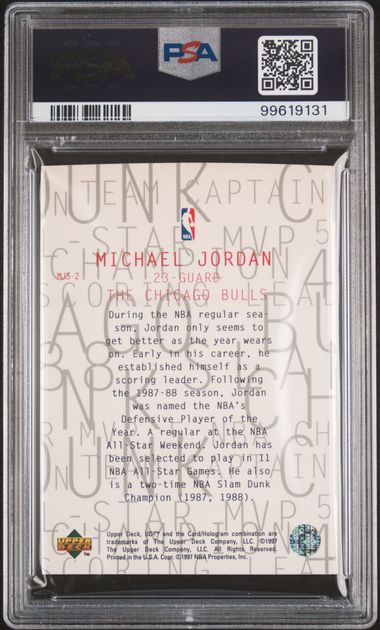 PSA
99619131
UNK C
N TEAM CAPTAIN
C-STAR MVP 5
NBA
MICHAEL JORDAN
MJ3-2
23-GUARD
THE CHICAGO BULLS
During the NBA regular sea-
son, Jordan only seems to
get better as the year wears
on. Early in his career, he
established himself as a
scoring leader. Following
the 1987-88 season, Jordan
was named the NBA's
Defensive Player of the
Year. A regular at the NBA
All-Star Weekend, Jordan has
been selected to play in 11
NBA All-Star Games. He also
is a two-time NBA Slam Dunk
Champion (1987, 1988).
UPPER DECK
Upper Deck, UD™ and the Card/Hologram combination are
trademarks of The Upper Deck Company, LLC. ©1997
The Upper Deck Company, LLC. All Rights Reserved.
Printed in the U.S.A. Copr. ©1997 NBA Properties, Inc.